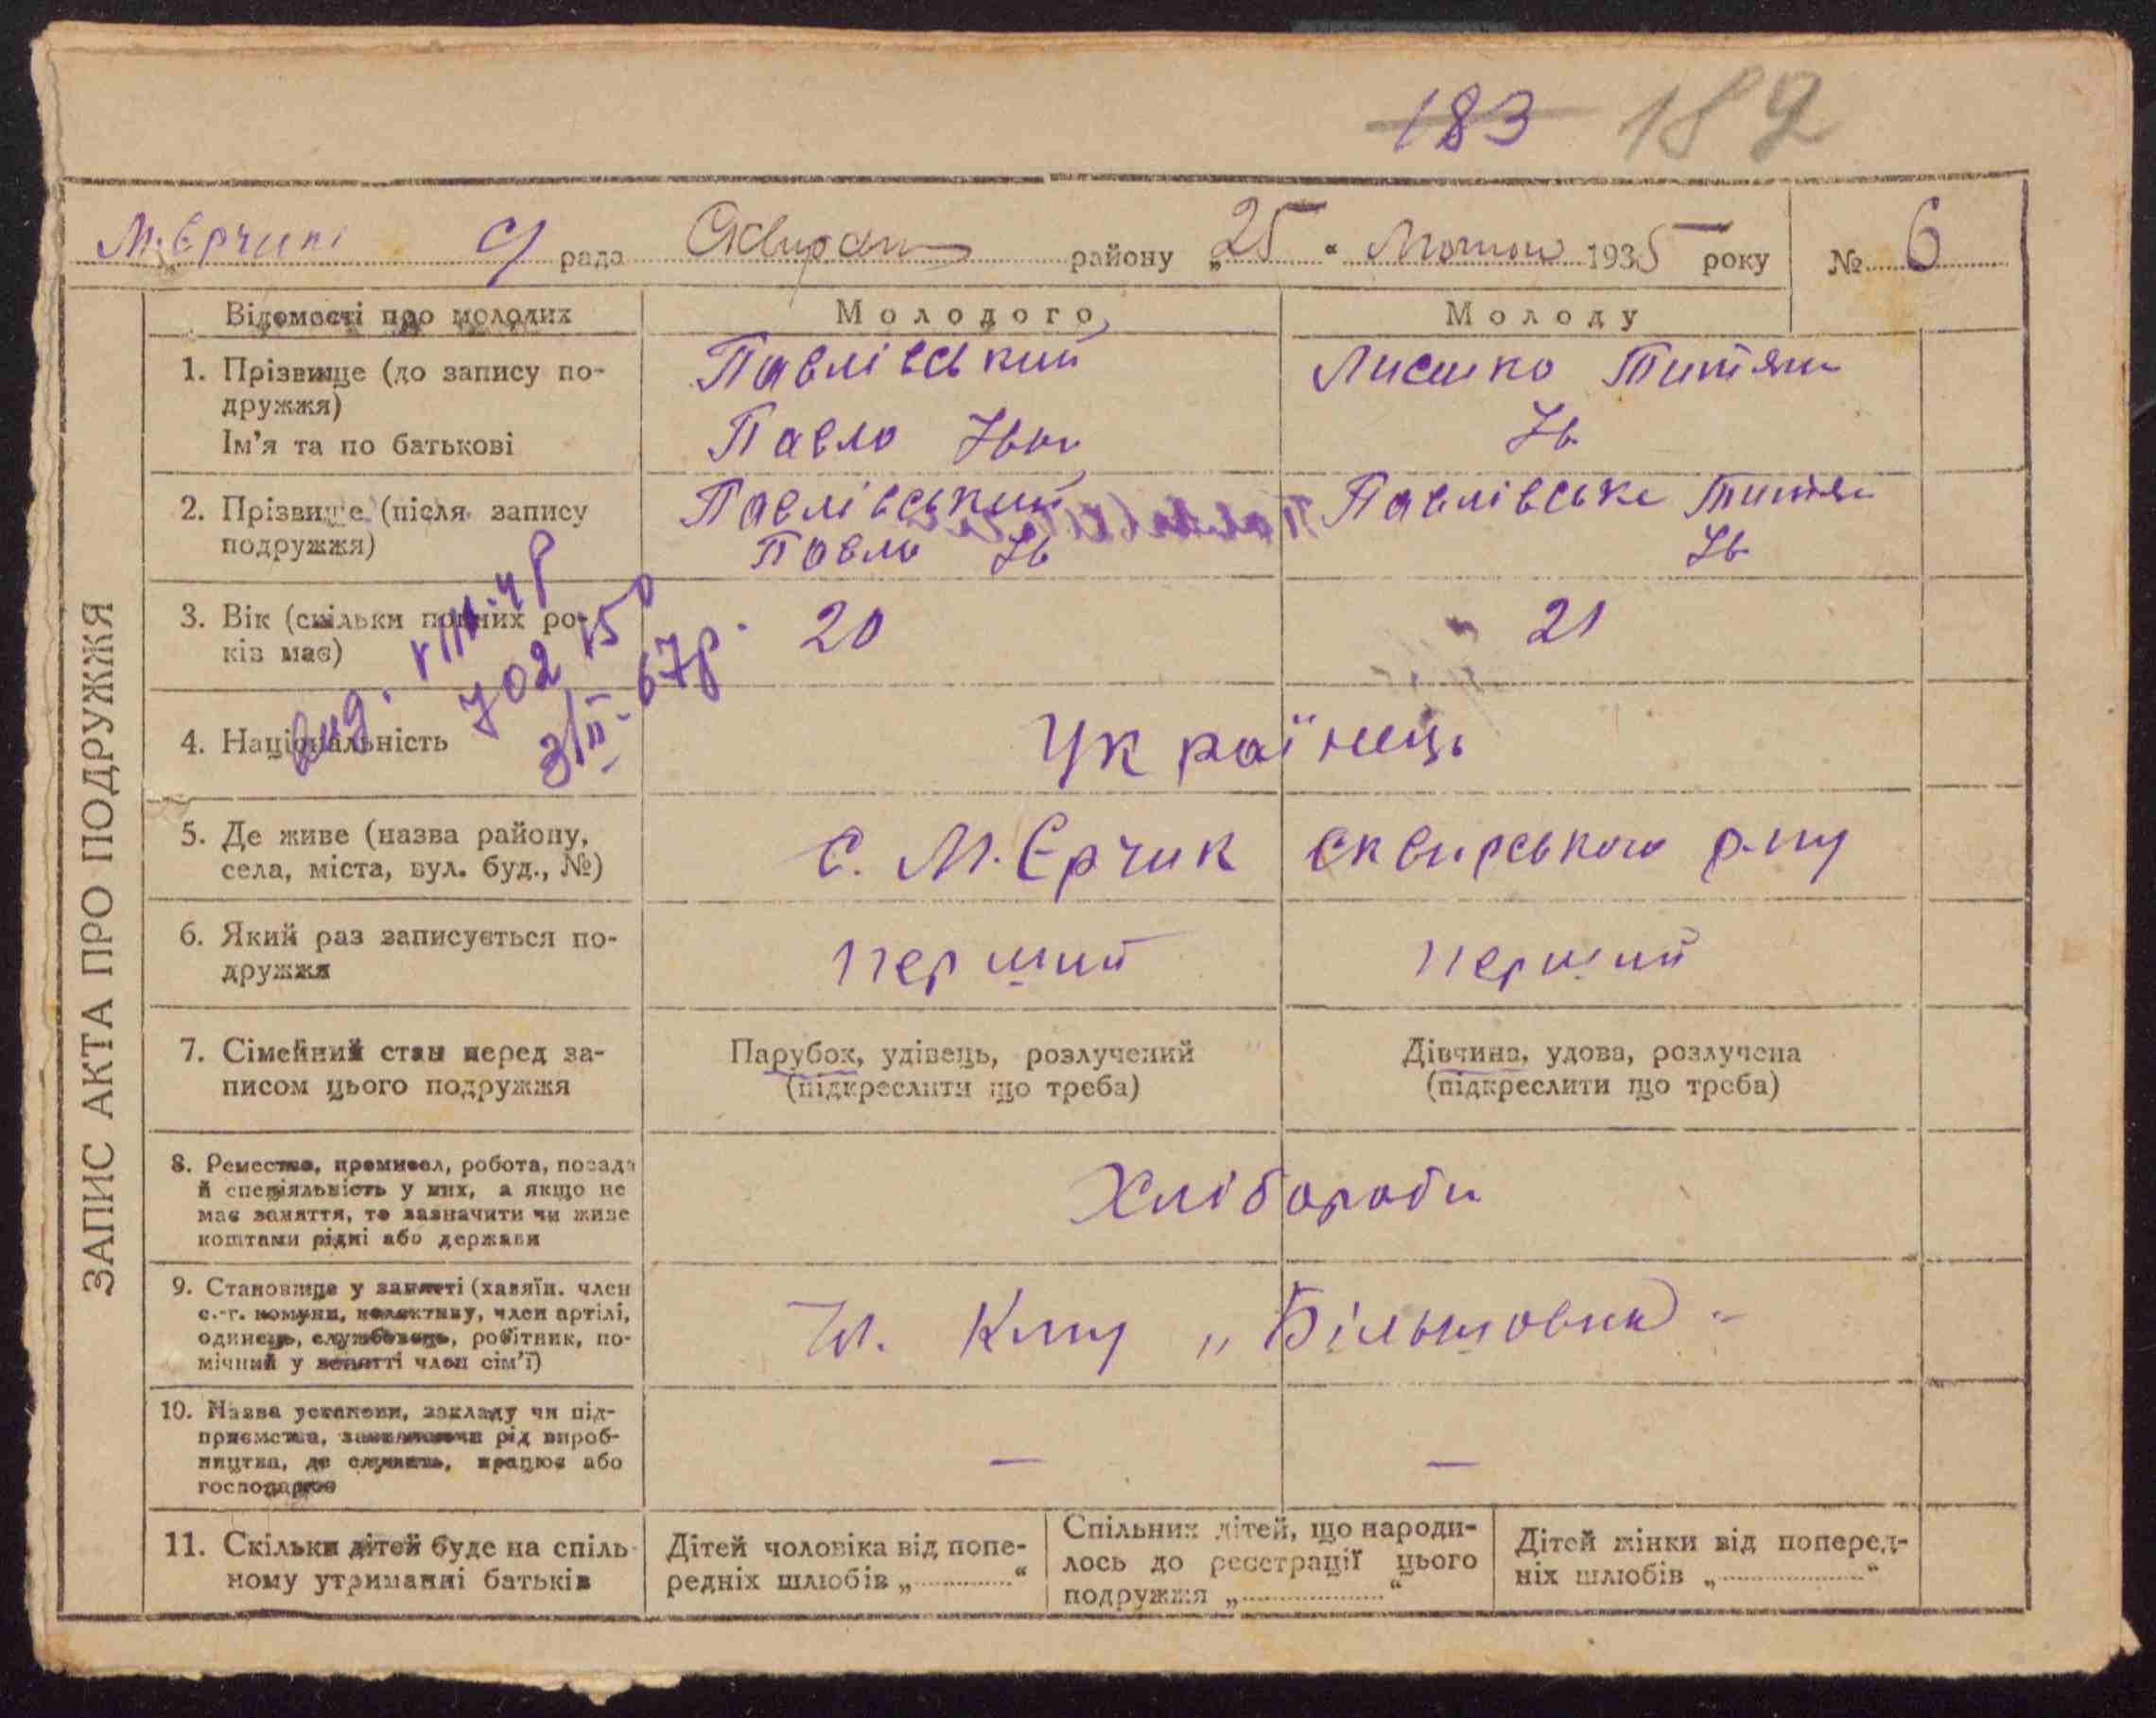 183 182
М. Єрчик с/ рада Сквирськ району „25“ Лютого 1935 року № 6
Відомості про молодих Молодого Молоду
1. Прізвище (до запису по-
дружжя)
Ім'я та по батькові
Павлівський
Павло Іван
Лисишко Титян
Ів
2. Прізвище (після запису
подружжя)
Павлівський
Павло Ів
Павлівська Титян
Ів
3. Вік (скільки повних ро-
ків має)
20
21
вид.
702 150
3/II- 67р.
4. Національність
Українець
5. Де живе (назва району,
села, міста, вул. буд., №)
С. М. Єрчик Сквирського р-ну
6. Який раз записується по-
дружжя
перший
перший
7. Сімейний стан перед за-
писом цього подружжя
Парубок, удівець, розлучений
(підкреслити що треба)
Дівчина, удова, розлучена
(підкреслити що треба)
8. Ремество, промисел, робота, посада
й спеціяльність у них, а якщо не
має заняття, то зазначити чи живе
коштами рідні або держави
Хлібороби
9. Становище у занятті (хазяїн. член
с.-г. комуни, колективу, член артілі,
одинець, службовець, робітник, по-
мічний у занятті член сім'ї)
Чл. К-пу „Більшовик"
10. Назва установи, закладу чи під-
приємства, зазначаючи рід вироб-
ництва, де служить, працює або
господарює
—
—
11. Скільки дітей буде на спіль-
ному утриманні батьків
Дітей чоловіка від попе-
редніх шлюбів „..........“
Спільних дітей, що народи-
лось до реєстрації цього
подружжя „..........“
Дітей жінки від поперед-
ніх шлюбів „..........“
ЗАПИС АКТА ПРО ПОДРУЖЖЯ